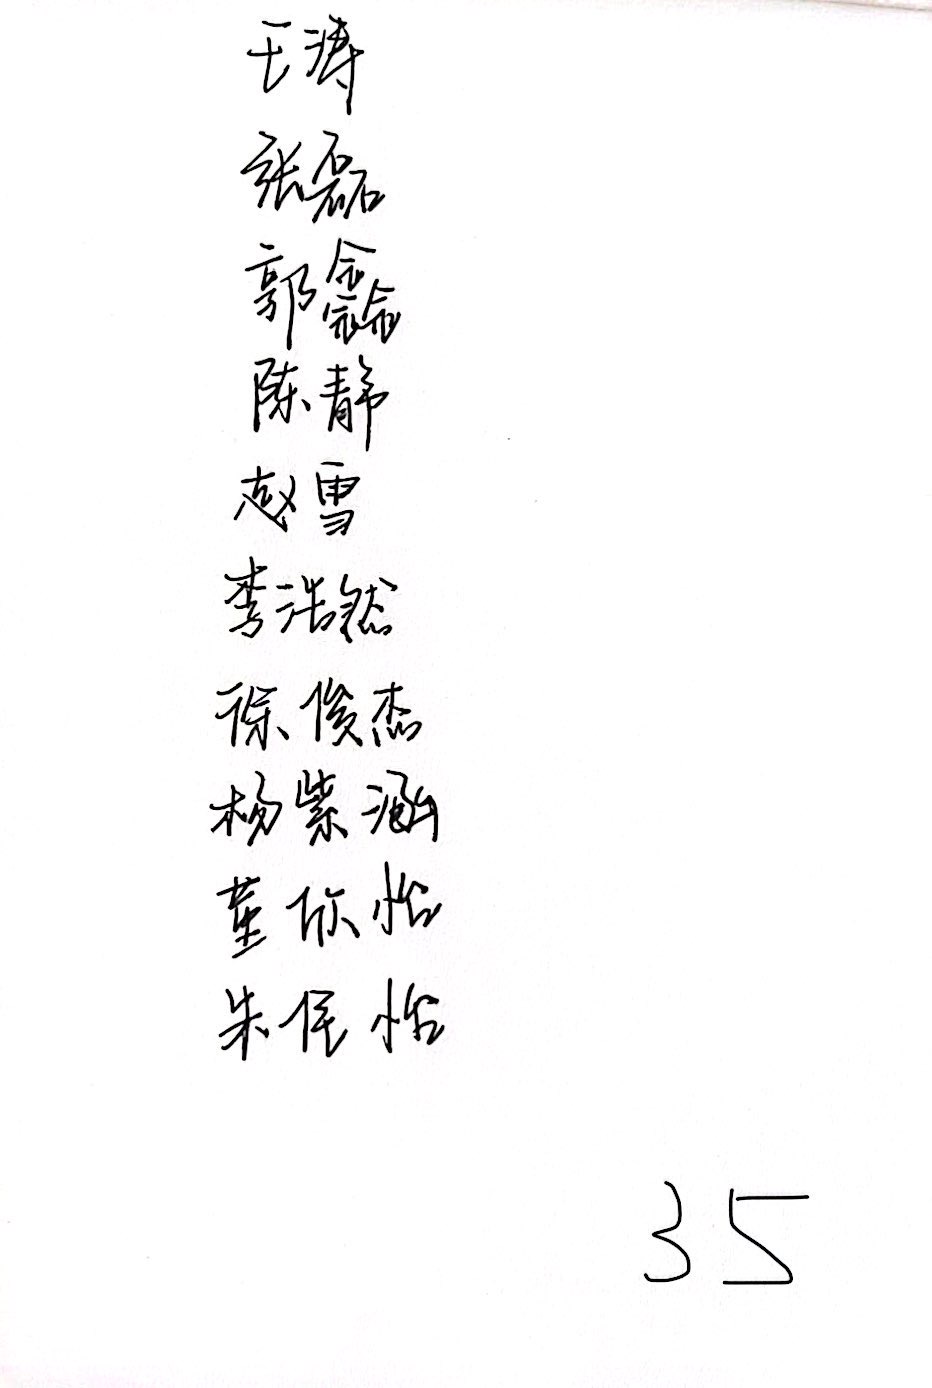 王涛
张磊
郭鑫
陈静
赵雪
李浩然
徐俊杰
杨紫涵
董欣怡
朱佳怡
35